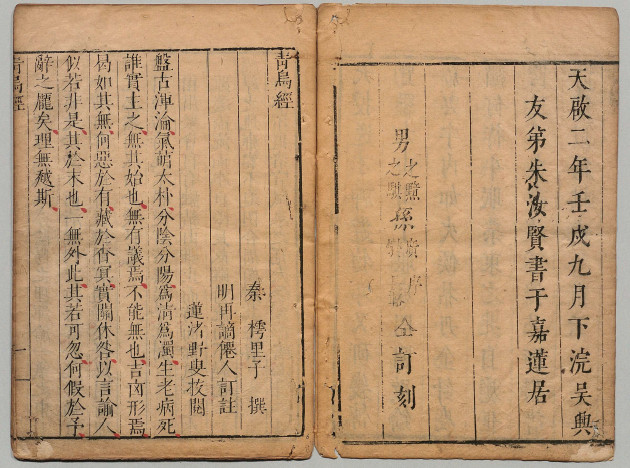 天啟二年壬戌九月下浣吳興
友弟朱汝賢書于嘉蓮居
男之
孫
仝訂刻
青烏經
秦樗里子撰
明再謫僊人訂註
蓮渚野叟校閱
盤古渾淪氣萌太朴分陰分陽為清為濁生老病死
誰實主之無其始也無有議焉不能無也吉凶形焉
曷如其無何惡於有藏於杳冥實關休咎以言諭人
似若非是其於末也一無外此其若可忽何假於予
辭之厖矣理無越斯
青烏經
一